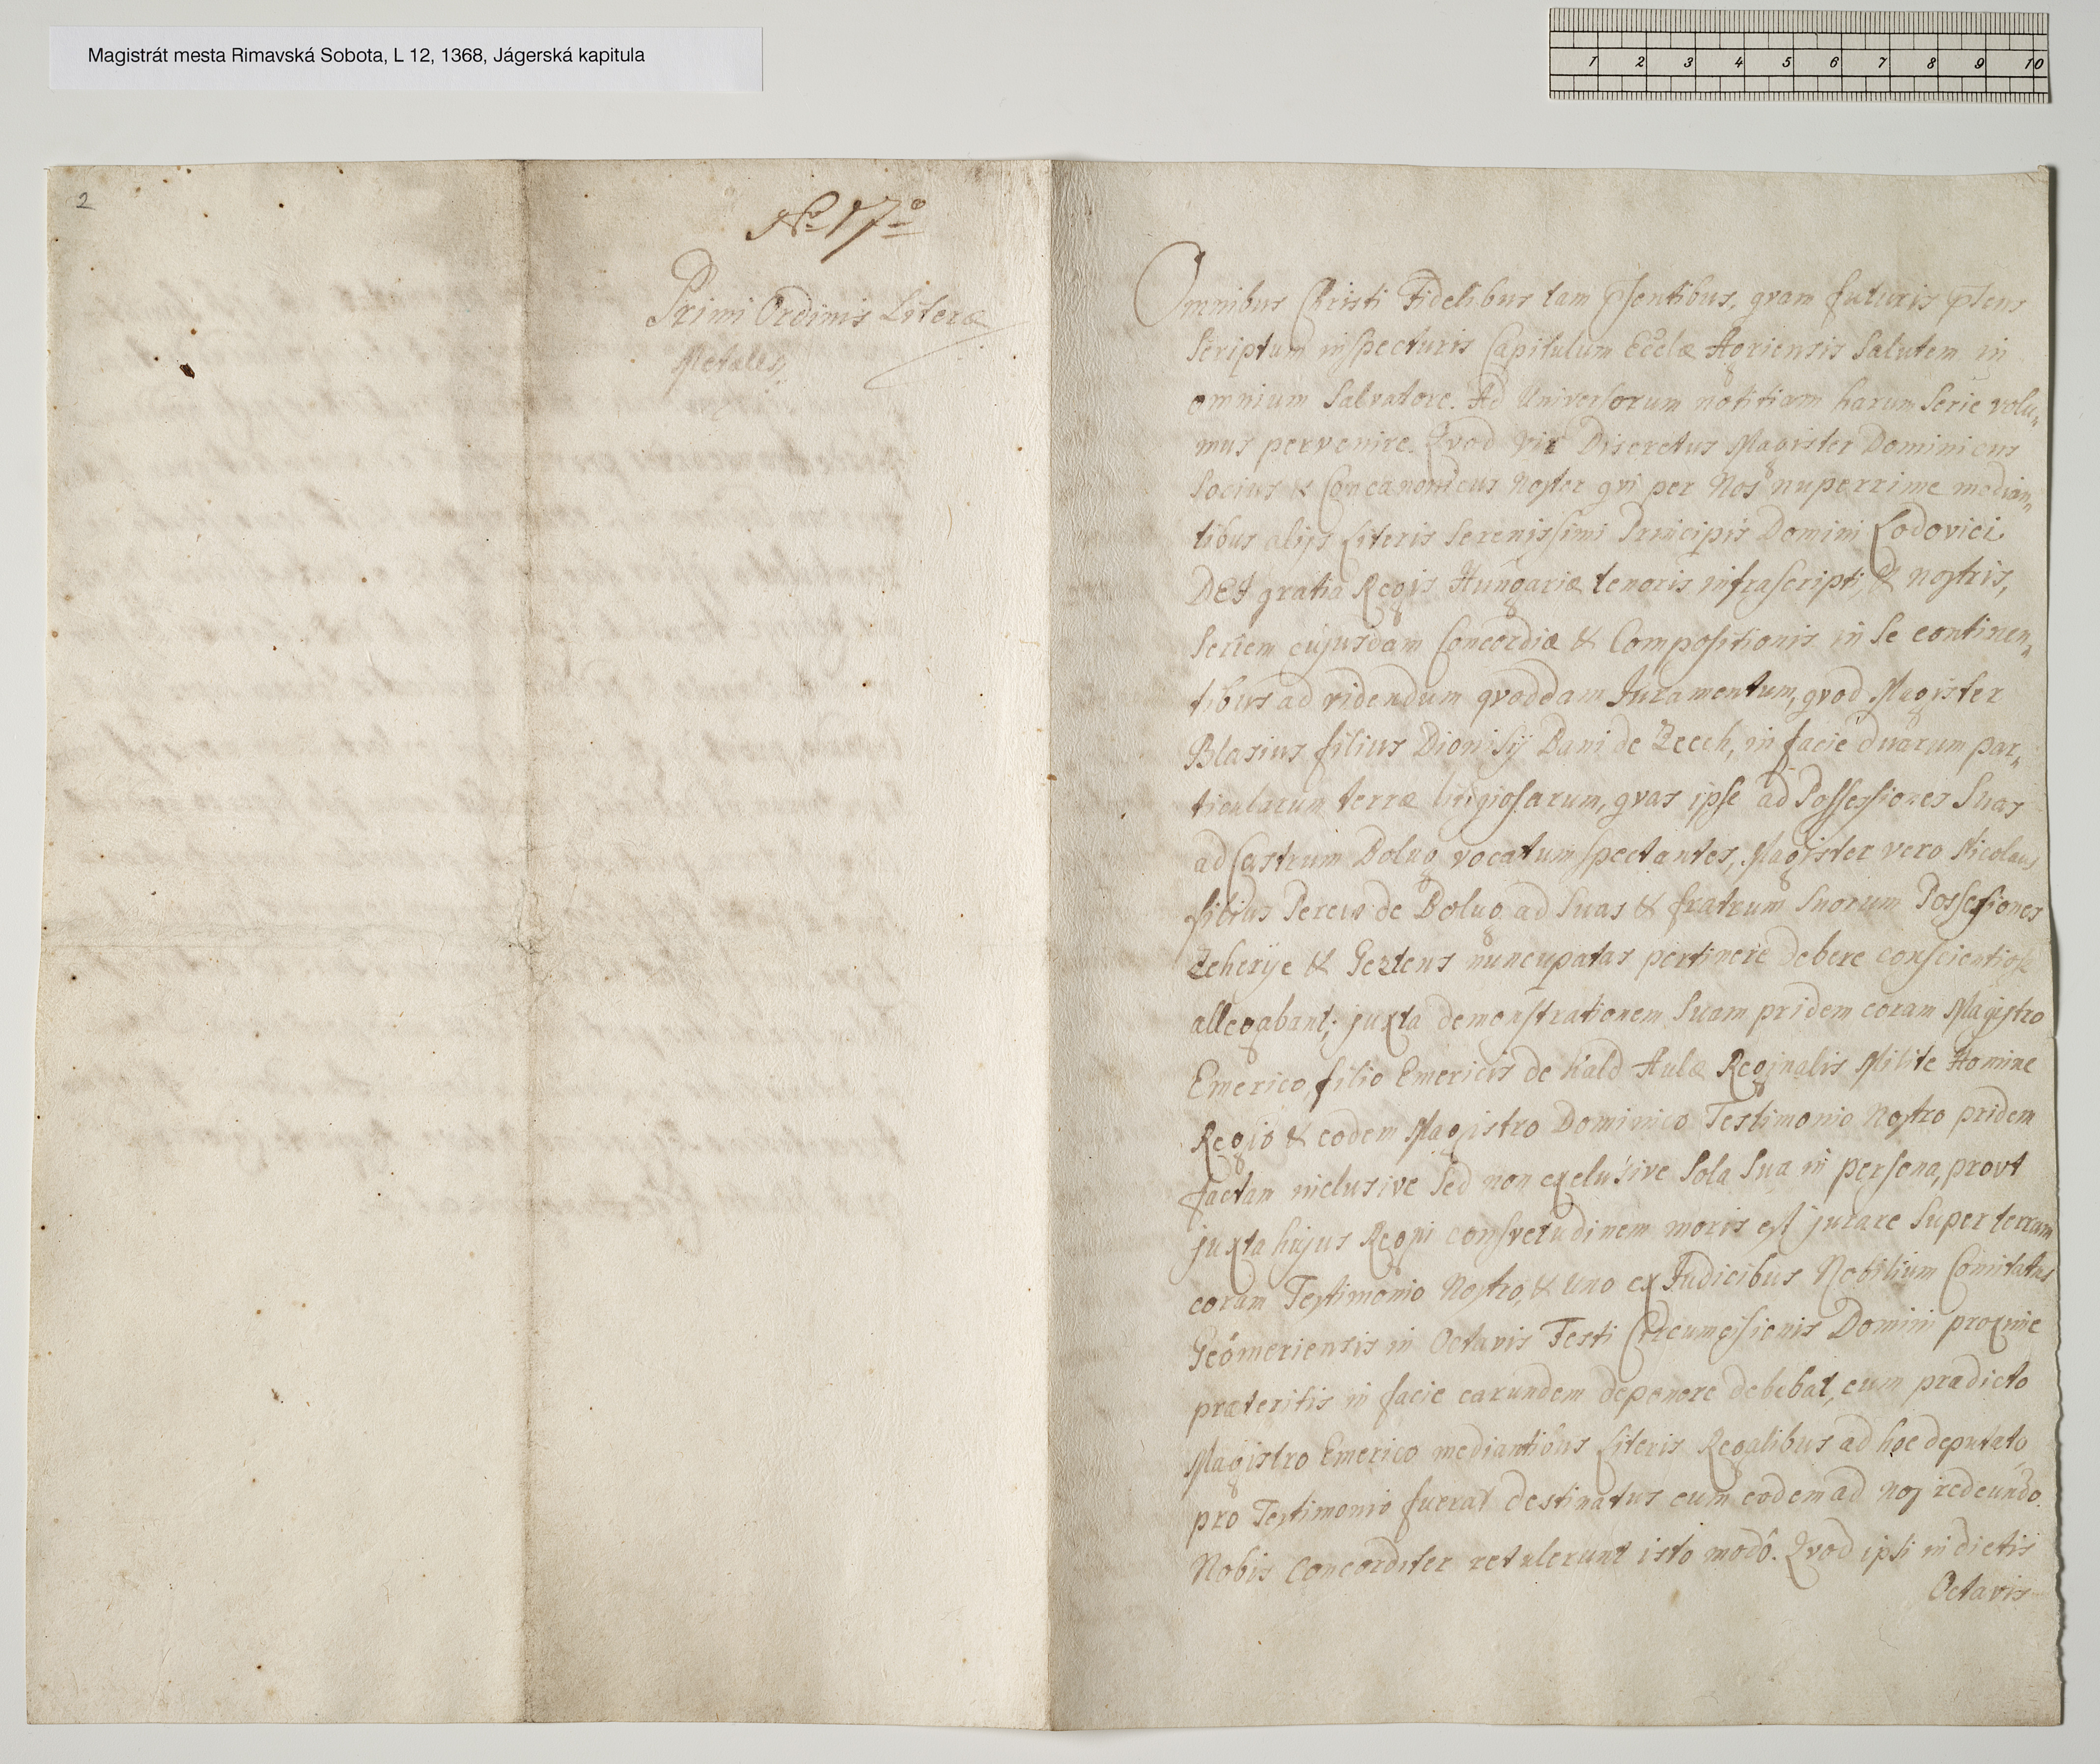 Magistrát mesta Rimavská Sobota, L 12, 1368, Jágerská kapitula
1 2 3 4 5 6 7 8 9 10
2
No 17o
Primi Ordinis Literæ
Metales
Omnibus Christi Fidelibus tam pñsentibus, qvam futuris pñens
Scriptum inspecturis Capitulum Ecclæ Agriensis Salutem in
omnium Salvatore. Ad Universorum notitiam harum Serie volu„
mus pervenire. Qvod vir Discretus Magister Dominicus
Socius & Concanonicus Noster qvi per Nos nuperrime median„
tibus alijs Literis Serenissimi Principis Domini Lodovici.
DEI gratia Regis Hungariæ tenoris infrascripti, & nostris,
Seriem cujusdam Concordiæ & Compositionis in Se continen„
tibus ad videndum qvoddam Juramentum, qvod Magister
Blasius filius Dionisÿ Bani de Zeech, in facie duarum par„
ticularum terræ litigiosarum, qvas ipse ad Possessiones Suas
ad Castrum Bolug vocatum spectantes, Magister vero Nicolaus
filius Pereus de Bolug ad Suas & fratrum Suorum Possesiones
Zeherije & Geztens nuncupatas pertinere debere
allegabant; juxta demonstrationem Suam pridem coram Magistro
Emerico filio Emericis de Kald Aulæ Reginalis Milite Homine
Regio & eodem Magistro Dominico Testimonio Nostro pridem
factam inclusive Sed non exclusive Sola Sua in persona, provt
juxta hujus Regni consvetudinem moris est jurare Super terram
coram Testimonio Nostro, & uno ex Judicibus Nobilium Comitatus
Geömeriensis in Octavis Festi Circumcisionis Domini proxime
præteritis in facie earundem deponere debebat, cum prædicto
Magistro Emerico mediantibus Literis Regalibus ad hoc deputato
pro Testimonio fuerat destinatus cum eodem ad nos redeundo.
Nobis Concorditer retulerunt isto modô. Qvod ipsi in dictis
Octavis